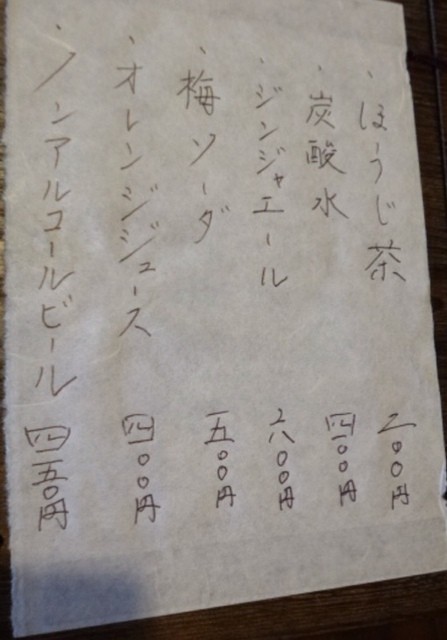 ・ほうじ茶 二〇〇円
・炭酸水 四〇〇円
・ジンジャエール 六〇〇円
・梅ソーダ 五〇〇円
・オレンジジュース 四〇〇円
・ノンアルコールビール 四五〇円